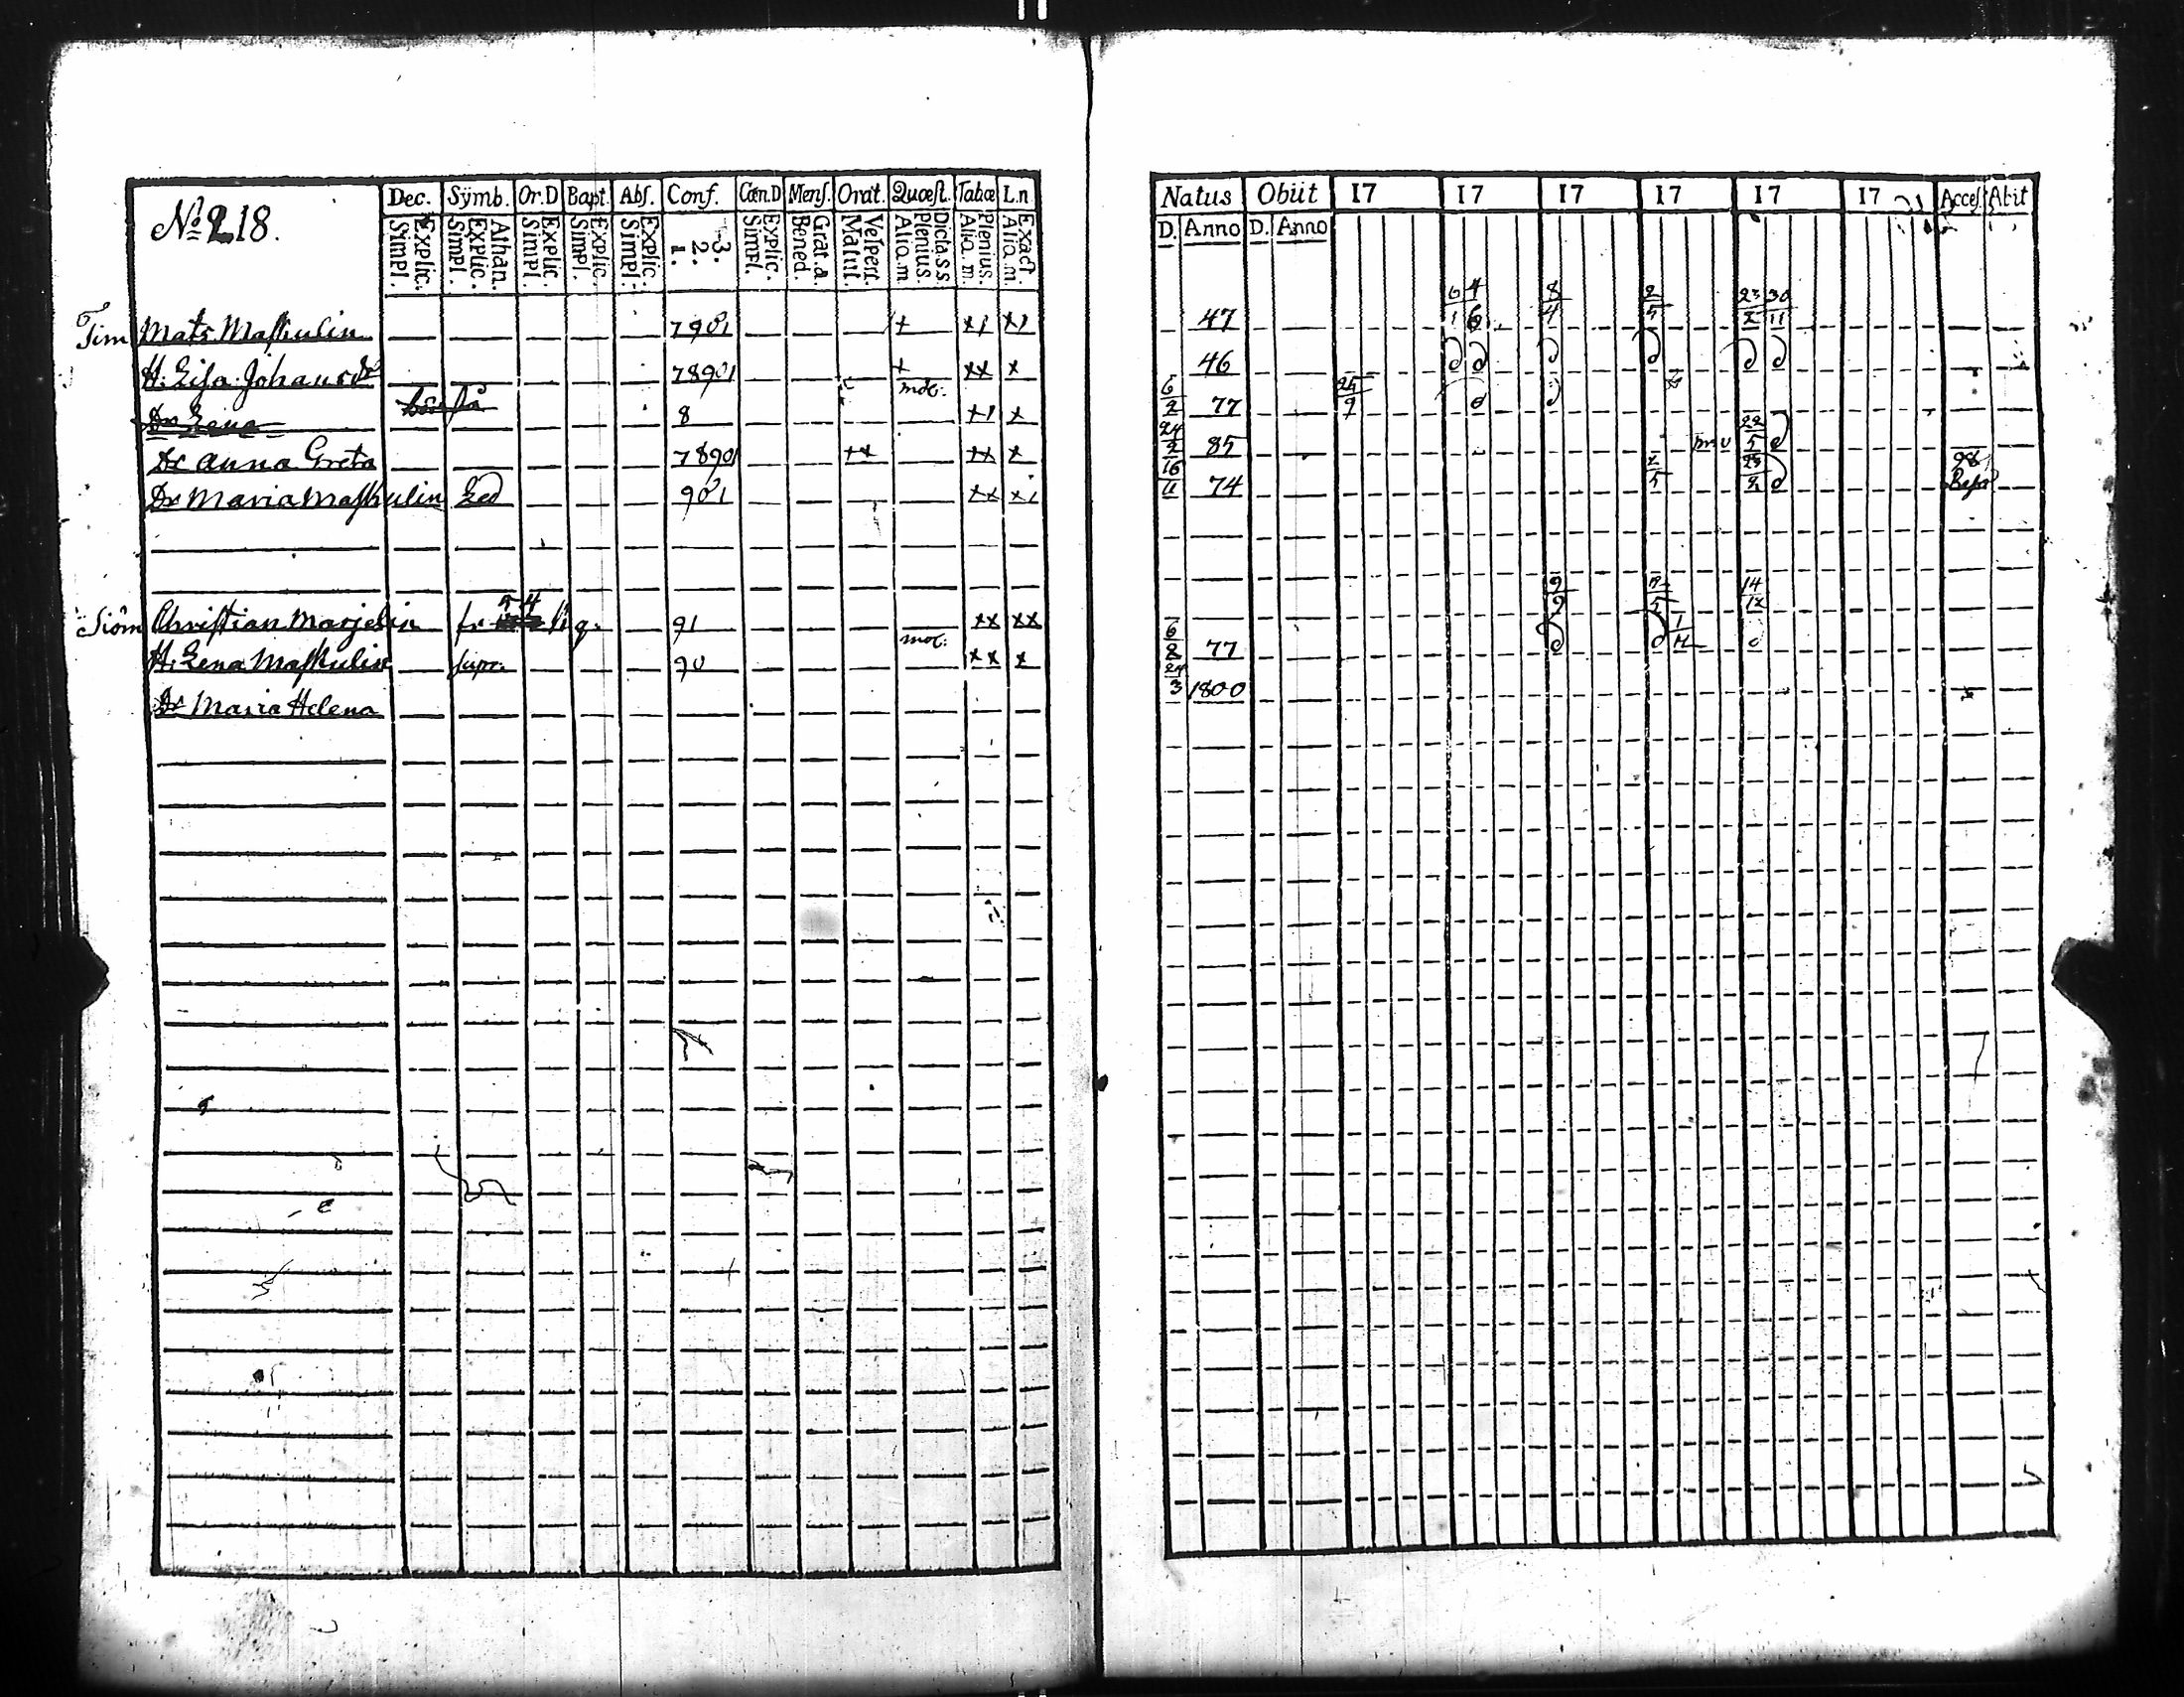 Nº 218.
Dec. Sÿmb. Or.D Bapt. Abſ. Conf. Cœn.D Menſ. Orat. Quæſt. Tabæ L.n
Explic. Simpl. Athan. Explic. Simpl. Explic. Simpl. Explic. Simpl. Explic. Simpl. 3. 2. 1. Explic. Simpl. Grat.a. Bened. Veſpert. Matut. Dicta.s.s Plenius. Aliq.m Plenius. Aliq.m. Exact Aliq.m.
Tim Mats Maſkulin 7901 + +1 +1
H. Liſa Johansdr 78901 + ++ +
Dr Lena 8 mot: +1 +
Dr Anna Greta 78901 ++ ++ +
Dr Maria Maſkulin 901 ++ +1
Christian Marjelin fr 91 ++ ++
H. Lena Maſkulin supr. 90 mot: ++ +
Dr Maria Helena
Natus Obiit 17 17 17 17 17 17 Acceſ. Abit
D. Anno D. Anno
47 6/1 4/6 8/4 2/5 23/2 30/11
46
6/2 77 25/9
24/2 85 22/5
16/11 74 2/5 23/2 98
9/9 2/5 14/12
6/2 77 1/4
24/3 1800